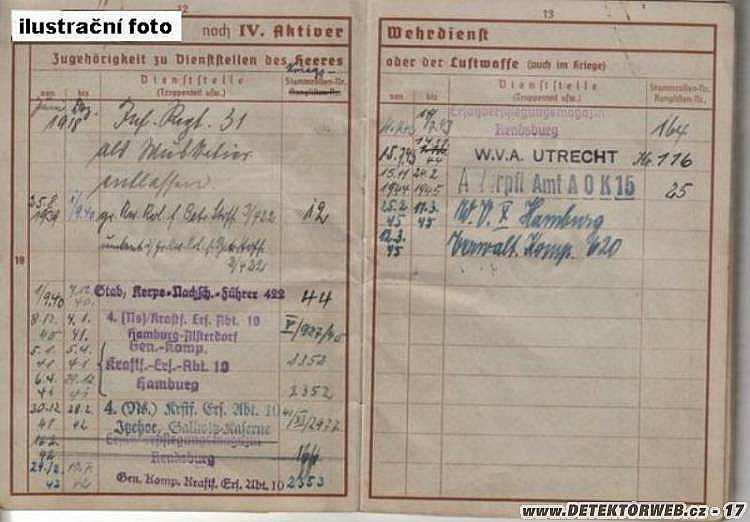 ilustrační foto
12
noch IV. Aktiver
Zugehörigkeit zu Dienststellen des Heeres
von
bis
Dienststelle
(Truppenteil usw.)
Kriegs-
Stammrollen-Nr.
Ranglisten-Nr.
1918
Inf. Regt. 31
als Musketier
entlassen
25.8.
1939
1/9.40
12
1/9.40
Stab, Korps-Nachsch.-Führer 422
44
8.12.
40
4.1.
41.
4. (Ns) Kraftf. Ers. Abt. 10
Hamburg-Alsterdorf
V/927/40
5.1.
41
5.4.
41
Gen.-Komp.
Kraftf.-Ers.-Abt. 10
Hamburg
1352
6.4.
41
29.12
41
2352
30.12
41
28.2.
42
4. (Ns.) Krftf. Ers. Abt. 10
Itzehoe, Gallwitz-Kaserne
Ersatzverpflegungsmagazin
Rendsburg
164
Gen. Komp. Kraftf. Ers. Abt. 10
2353
10
13
Wehrdienst
oder der Luftwaffe (auch im Kriege)
von
bis
Dienststelle
(Truppenteil usw.)
Stammrollen-Nr.
Ranglisten-Nr.
Ersatzverpflegungsmagazin
Rendsburg
164
15.7.43
W.V.A. UTRECHT
116
15.11
1944
24.2.
1945
Amt A O K 15
25
25.2.
45
11.3.
45
W. V. X Hamburg
12.3.
45
Verwalt. Komp. 620
www.DETEKTORWEB.cz - 17